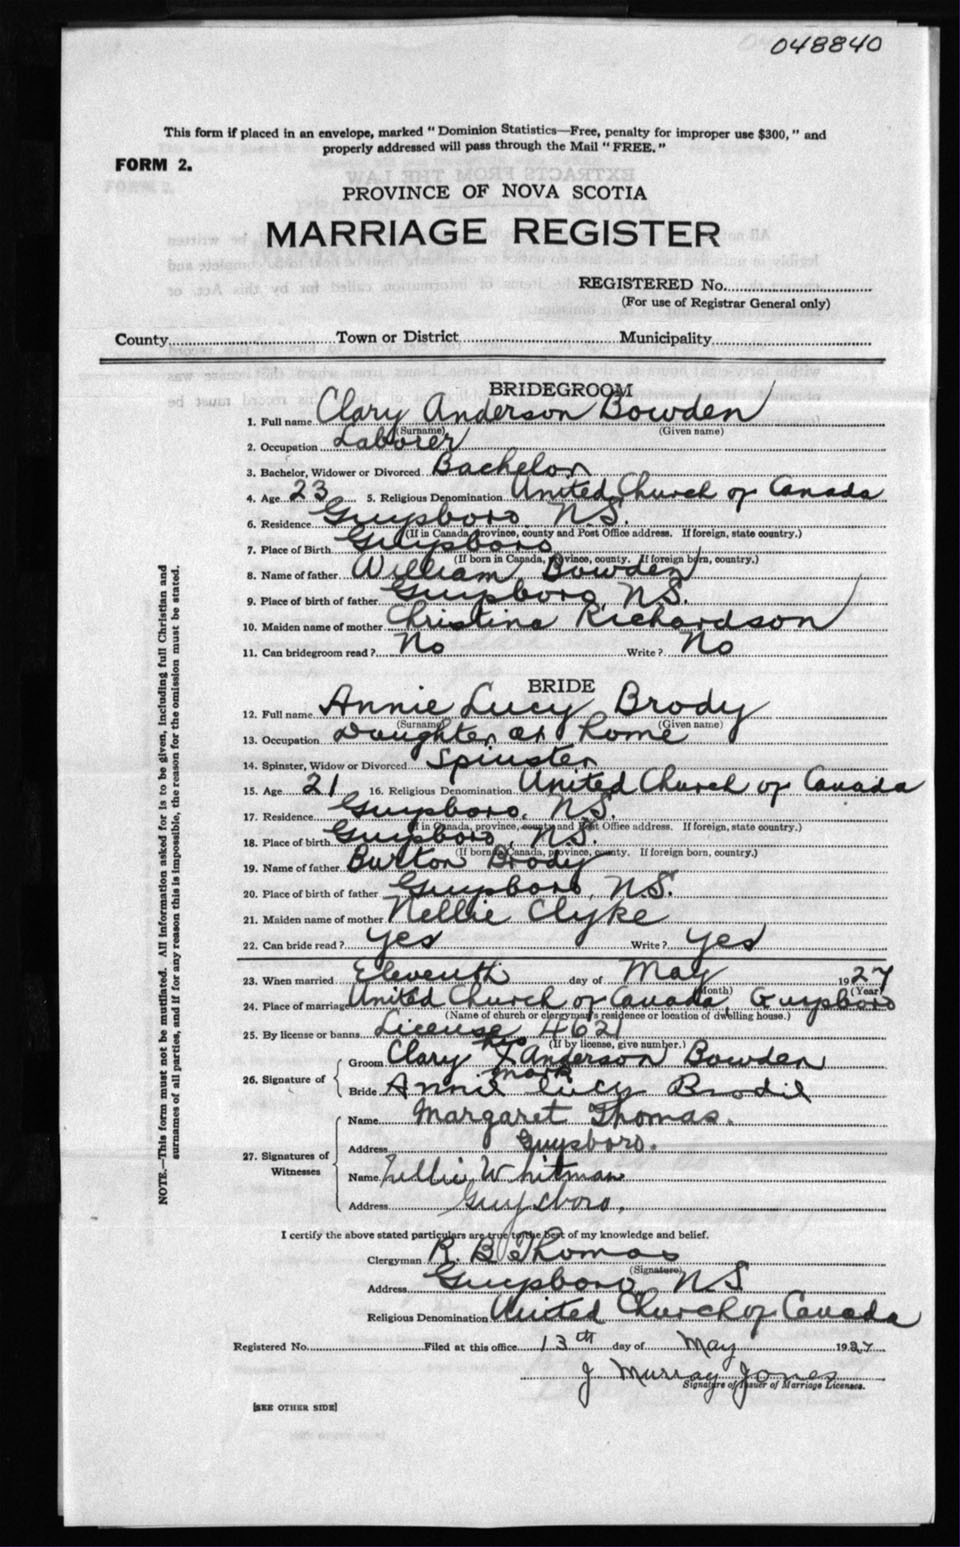 048840
This form if placed in an envelope, marked "Dominion Statistics—Free, penalty for improper use $300," and
properly addressed will pass through the Mail "FREE."
FORM 2.
PROVINCE OF NOVA SCOTIA
MARRIAGE REGISTER
REGISTERED No.
(For use of Registrar General only)
County Town or District Municipality
BRIDEGROOM
1. Full name Clary Anderson Bowden
(Surname) (Given name)
2. Occupation Laborer
3. Bachelor, Widower or Divorced Bachelor
4. Age 23 5. Religious Denomination United Church of Canada
6. Residence Guysboro N.S.
(If in Canada, province, county and Post Office address. If foreign, state country.)
7. Place of Birth Guysboro
(If born in Canada, province, county. If foreign born, country.)
8. Name of father William Bowden
9. Place of birth of father Guysboro N.S.
10. Maiden name of mother Christina Richardson
11. Can bridegroom read? No Write? No
BRIDE
12. Full name Annie Lucy Brody
(Surname) (Given name)
13. Occupation Daughter at home
14. Spinster, Widow or Divorced Spinster
15. Age 21 16. Religious Denomination United Church of Canada
17. Residence Guysboro, N.S.
(If in Canada, province, county and Post Office address. If foreign, state country.)
18. Place of birth Guysboro, N.S.
(If born in Canada, province, county. If foreign born, country.)
19. Name of father Burton Brody
20. Place of birth of father Guysboro, N.S.
21. Maiden name of mother Nellie Clyke
22. Can bride read? yes Write? yes
23. When married Eleventh day of May 1927
(Month) (Year)
24. Place of marriage United Church of Canada, Guysboro
(Name of church or clergyman's residence or location of dwelling house.)
25. By license or banns License 4621
(If by license, give number.)
26. Signature of
Groom Clary his X mark Anderson Bowden
Bride Annie Lucy Brodie
27. Signatures of Witnesses
Name Margaret Thomas.
Address Guysboro.
Name Lillie Whitman
Address Guysboro.
I certify the above stated particulars are true to the best of my knowledge and belief.
Clergyman R. B. Thomas
(Signature)
Address Guysboro N.S
Religious Denomination United Church of Canada
Registered No. Filed at this office 13th day of May 1927
J Murray Jones
Signature of Issuer of Marriage Licenses.
[SEE OTHER SIDE]
NOTE.—This form must not be mutilated. All information asked for is to be given, including full Christian and
surnames of all parties, and if for any reason this is impossible, the reason for the omission must be stated.